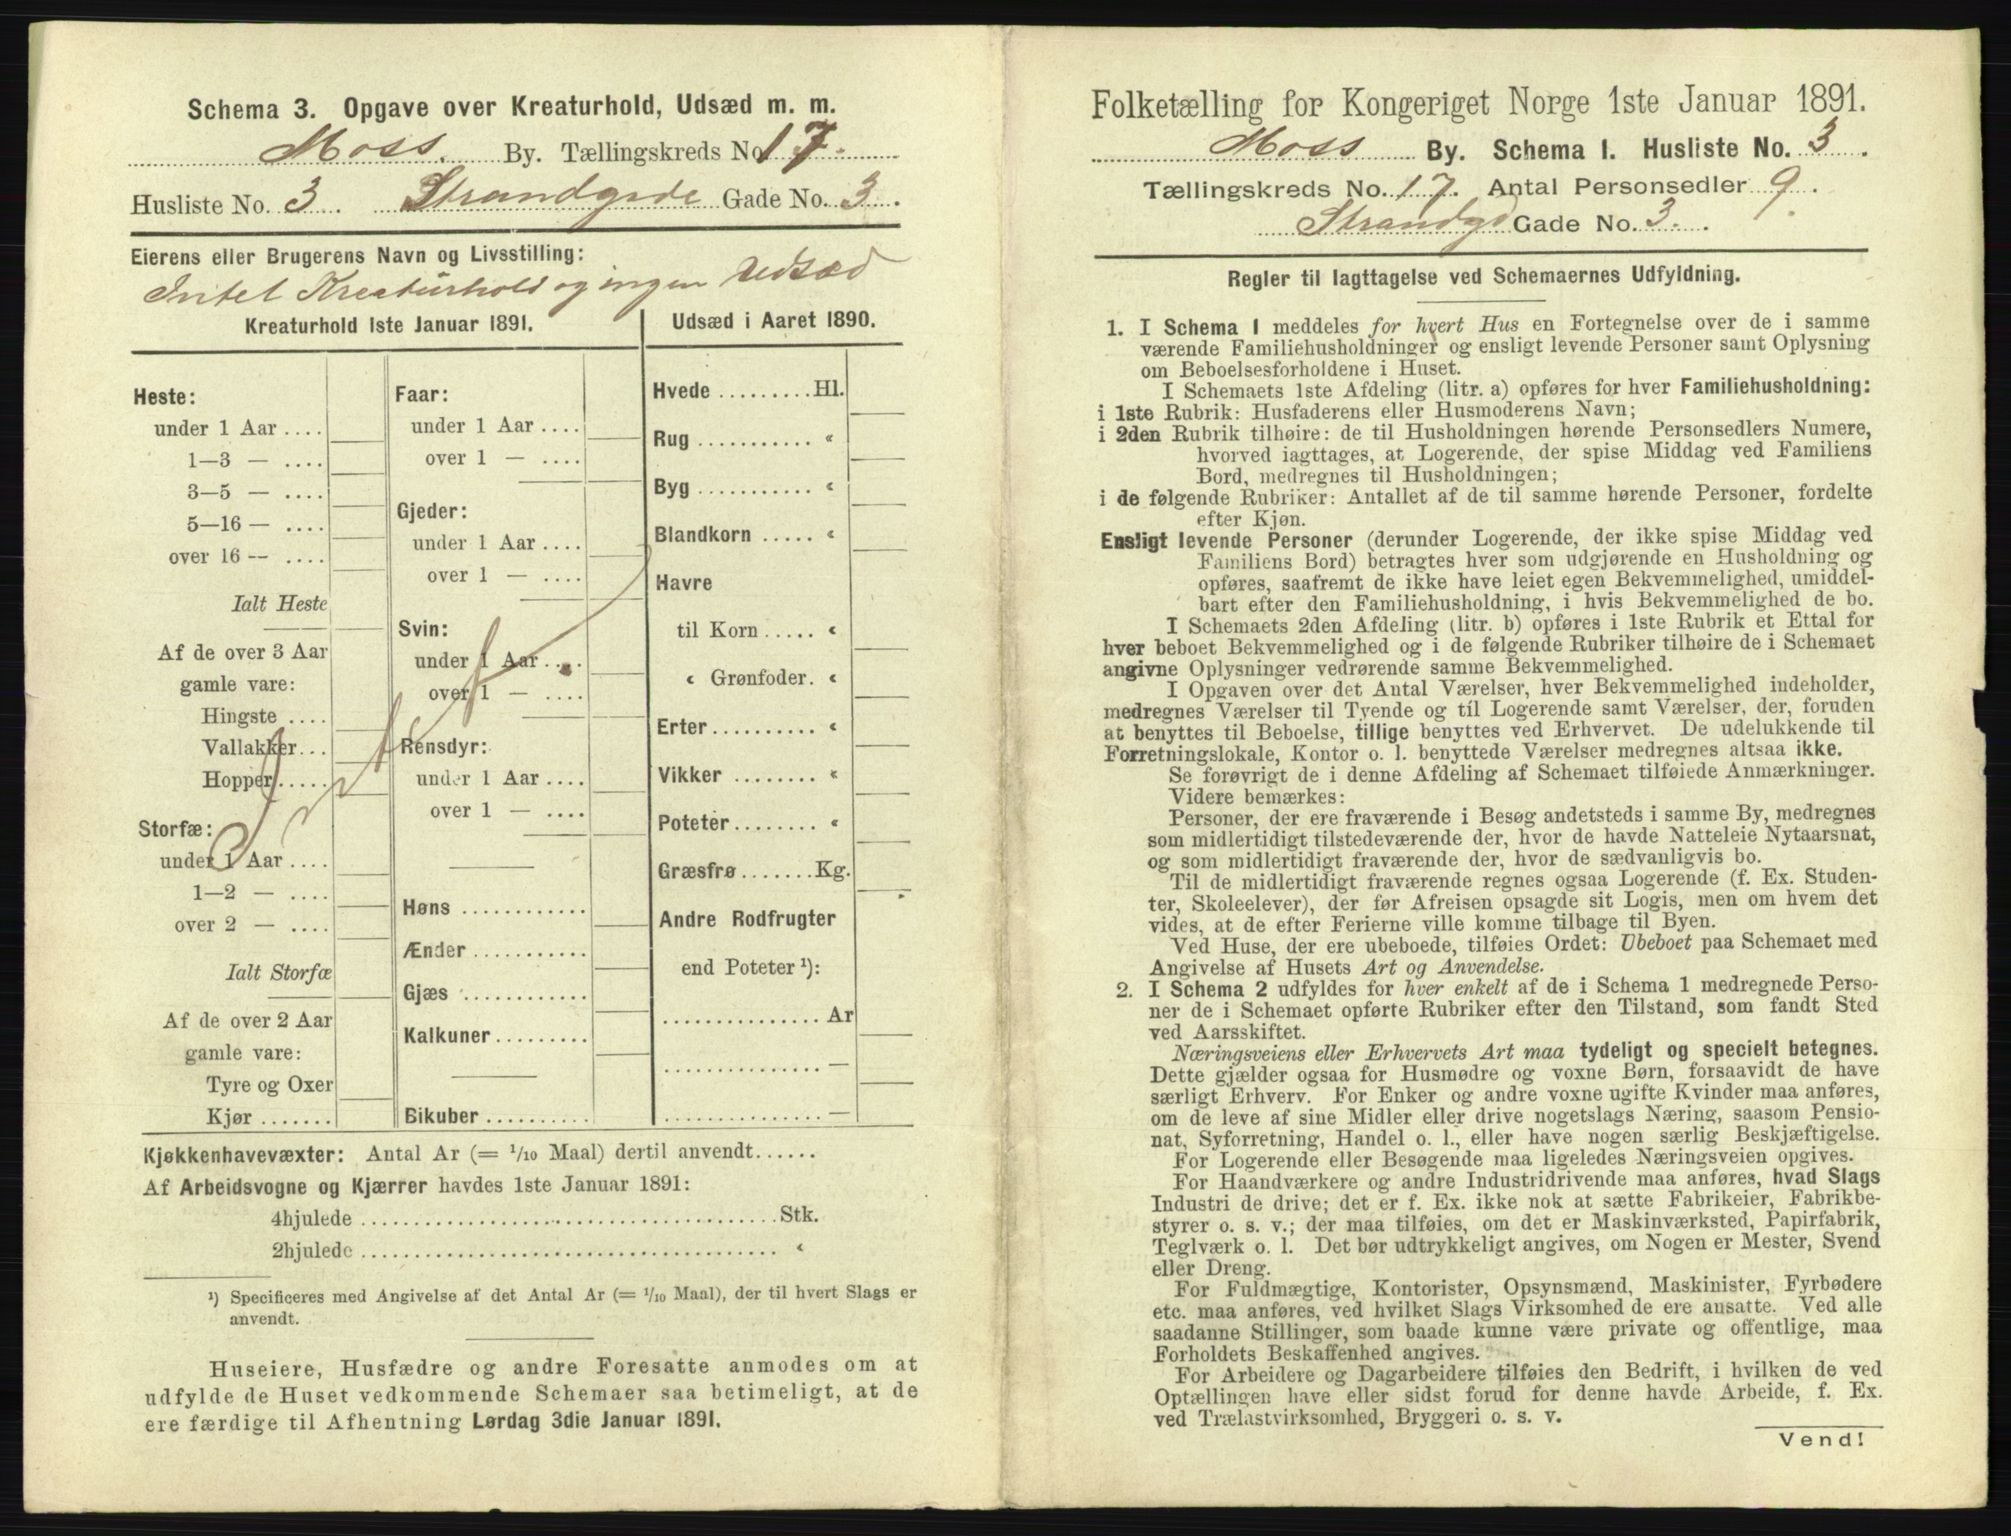 Schema 3. Opgave over Kreaturhold, Udsæd m. m.
Moss. By. Tællingskreds No. 17.
Husliste No. 3. Strandgade Gade No. 3.
Eierens eller Brugerens Navn og Livsstilling:
Intet Kreaturhold og ingen Udsæd
Kreaturhold 1ste Januar 1891.
Heste:
under 1 Aar ....
1—3 — ....
3—5 — ....
5—16 — ....
over 16 -- ....
Ialt Heste
Af de over 3 Aar
gamle vare:
Hingste ....
Vallakker...
Hopper.....
Storfæ:
under 1 Aar ....
1—2 — ....
over 2 — ....
Ialt Storfæ
Af de over 2 Aar
gamle vare:
Tyre og Oxer
Kjør .......
Faar:
under 1 Aar ....
over 1 — ....
Gjeder:
under 1 Aar ....
over 1 — ....
Svin:
under 1 Aar ....
over 1 — ....
Rensdyr:
under 1 Aar ....
over 1 — ....
Høns ..........
Ænder .........
Gjæs ..........
Kalkuner.......
Bikuber ........
Intet
Udsæd i Aaret 1890.
Hvede .........Hl.
Rug ........... «
Byg ........... «
Blandkorn ..... «
Havre
til Korn ..... «
« Grønfoder. «
Erter.......... «
Vikker ........ «
Poteter........ «
Græsfrø.......Kg.
Andre Rodfrugter
end Poteter ¹):
............... Ar
............... —
............... —
Kjøkkenhavevæxter: Antal Ar (= 1/10 Maal) dertil anvendt......
Af Arbeidsvogne og Kjærrer havdes 1ste Januar 1891:
4hjulede ........................................Stk.
2hjulede ........................................ «
¹) Specificeres med Angivelse af det Antal Ar (= 1/10 Maal), der til hvert Slags er
anvendt.
Huseiere, Husfædre og andre Foresatte anmodes om at
udfylde de Huset vedkommende Schemaer saa betimeligt, at de
ere færdige til Afhentning Lørdag 3die Januar 1891.
Folketælling for Kongeriget Norge 1ste Januar 1891.
Moss By. Schema 1. Husliste No. 3.
Tællingskreds No. 17. Antal Personsedler 9.
Strandgd Gade No. 3.
Regler til Iagttagelse ved Schemaernes Udfyldning.
1. I Schema 1 meddeles for hvert Hus en Fortegnelse over de i samme
værende Familiehusholdninger og ensligt levende Personer samt Oplysning
om Beboelsesforholdene i Huset.
I Schemaets 1ste Afdeling (litr. a) opføres for hver Familiehusholdning:
i 1ste Rubrik: Husfaderens eller Husmoderens Navn;
i 2den Rubrik tilhøire: de til Husholdningen hørende Personsedlers Numere,
hvorved iagttages, at Logerende, der spise Middag ved Familiens
Bord, medregnes til Husholdningen;
i de følgende Rubriker: Antallet af de til samme hørende Personer, fordelte
efter Kjøn.
Ensligt levende Personer (derunder Logerende, der ikke spise Middag ved
Familiens Bord) betragtes hver som udgjørende en Husholdning og
opføres, saafremt de ikke have leiet egen Bekvemmelighed, umiddel-
bart efter den Familiehusholdning, i hvis Bekvemmelighed de bo.
I Schemaets 2den Afdeling (litr. b) opføres i 1ste Rubrik et Ettal for
hver beboet Bekvemmelighed og i de følgende Rubriker tilhøire de i Schemaet
angivne Oplysninger vedrørende samme Bekvemmelighed.
I Opgaven over det Antal Værelser, hver Bekvemmelighed indeholder,
medregnes Værelser til Tyende og til Logerende samt Værelser, der, foruden
at benyttes til Beboelse, tillige benyttes ved Erhvervet. De udelukkende til
Forretningslokale, Kontor o. l. benyttede Værelser medregnes altsaa ikke.
Se forøvrigt de i denne Afdeling af Schemaet tilføiede Anmærkninger.
Videre bemærkes:
Personer, der ere fraværende i Besøg andetsteds i samme By, medregnes
som midlertidigt tilstedeværende der, hvor de havde Natteleie Nytaarsnat,
og som midlertidigt fraværende der, hvor de sædvanligvis bo.
Til de midlertidigt fraværende regnes ogsaa Logerende (f. Ex. Studen-
ter, Skoleelever), der før Afreisen opsagde sit Logis, men om hvem det
vides, at de efter Ferierne ville komme tilbage til Byen.
Ved Huse, der ere ubeboede, tilføies Ordet: Ubeboet paa Schemaet med
Angivelse af Husets Art og Anvendelse.
2. I Schema 2 udfyldes for hver enkelt af de i Schema 1 medregnede Perso-
ner de i Schemaet opførte Rubriker efter den Tilstand, som fandt Sted
ved Aarsskiftet.
Næringsveiens eller Erhvervets Art maa tydeligt og specielt betegnes.
Dette gjælder ogsaa for Husmødre og voxne Børn, forsaavidt de have
særligt Erhverv. For Enker og andre voxne ugifte Kvinder maa anføres,
om de leve af sine Midler eller drive nogetslags Næring, saasom Pensio-
nat, Syforretning, Handel o. l., eller have nogen særlig Beskjæftigelse.
For Logerende eller Besøgende maa ligeledes Næringsveien opgives.
For Haandværkere og andre Industridrivende maa anføres, hvad Slags
Industri de drive; det er f. Ex. ikke nok at sætte Fabrikeier, Fabrikbe-
styrer o. s. v.; der maa tilføies, om det er Maskinværksted, Papirfabrik,
Teglværk o. l. Det bør udtrykkeligt angives, om Nogen er Mester, Svend
eller Dreng.
For Fuldmægtige, Kontorister, Opsynsmænd, Maskinister, Fyrbødere
etc. maa anføres, ved hvilket Slags Virksomhed de ere ansatte. Ved alle
saadanne Stillinger, som baade kunne være private og offentlige, maa
Forholdets Beskaffenhed angives.
For Arbeidere og Dagarbeidere tilføies den Bedrift, i hvilken de ved
Optællingen have eller sidst forud for denne havde Arbeide, f. Ex.
ved Trælastvirksomhed, Bryggeri o. s. v.
Vend!